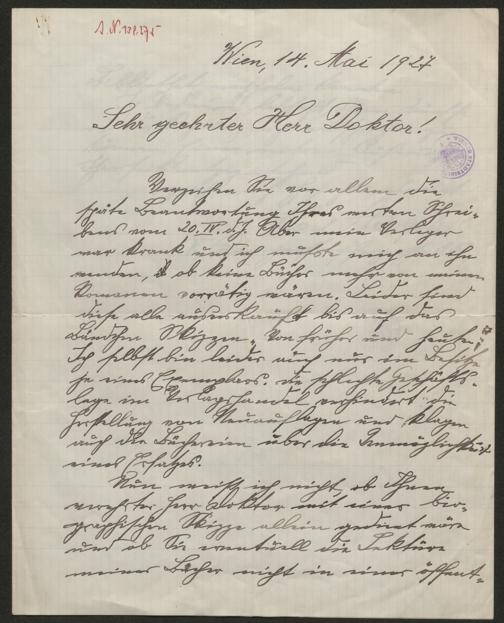 Wien, 14. Mai 1927
Sehr geehrter Herr Doktor!
Verzeihen Sie vor allem die
späte Beantwortung Ihres werten Schrei-
bens vom 20. IV. d. J. Aber mein Verleger
war krank und ich mußte mich an ihn
wenden, ob keine Bücher mehr von meinen
Romanen vorrätig wären. Leider sind
diese alle ausverkauft bis auf das
Bändchen Skizzen „Von früher und heute“.
Ich selbst bin leider auch nur im Besitze
je eines Exemplars. Die schlechte Geschäfts-
lage im Verlagshandel verhindert die
Herstellung von Neuauflagen und klagen
auch die Büchereien über die Unmöglichkeit
eines Ersatzes.
Nun weiß ich nicht, ob Ihnen
verehrter Herr Doktor mit einer bio-
graphischen Skizze allein gedient wäre
und ob Sie eventuell die Lektüre
meiner Bücher nicht in einer öffent-